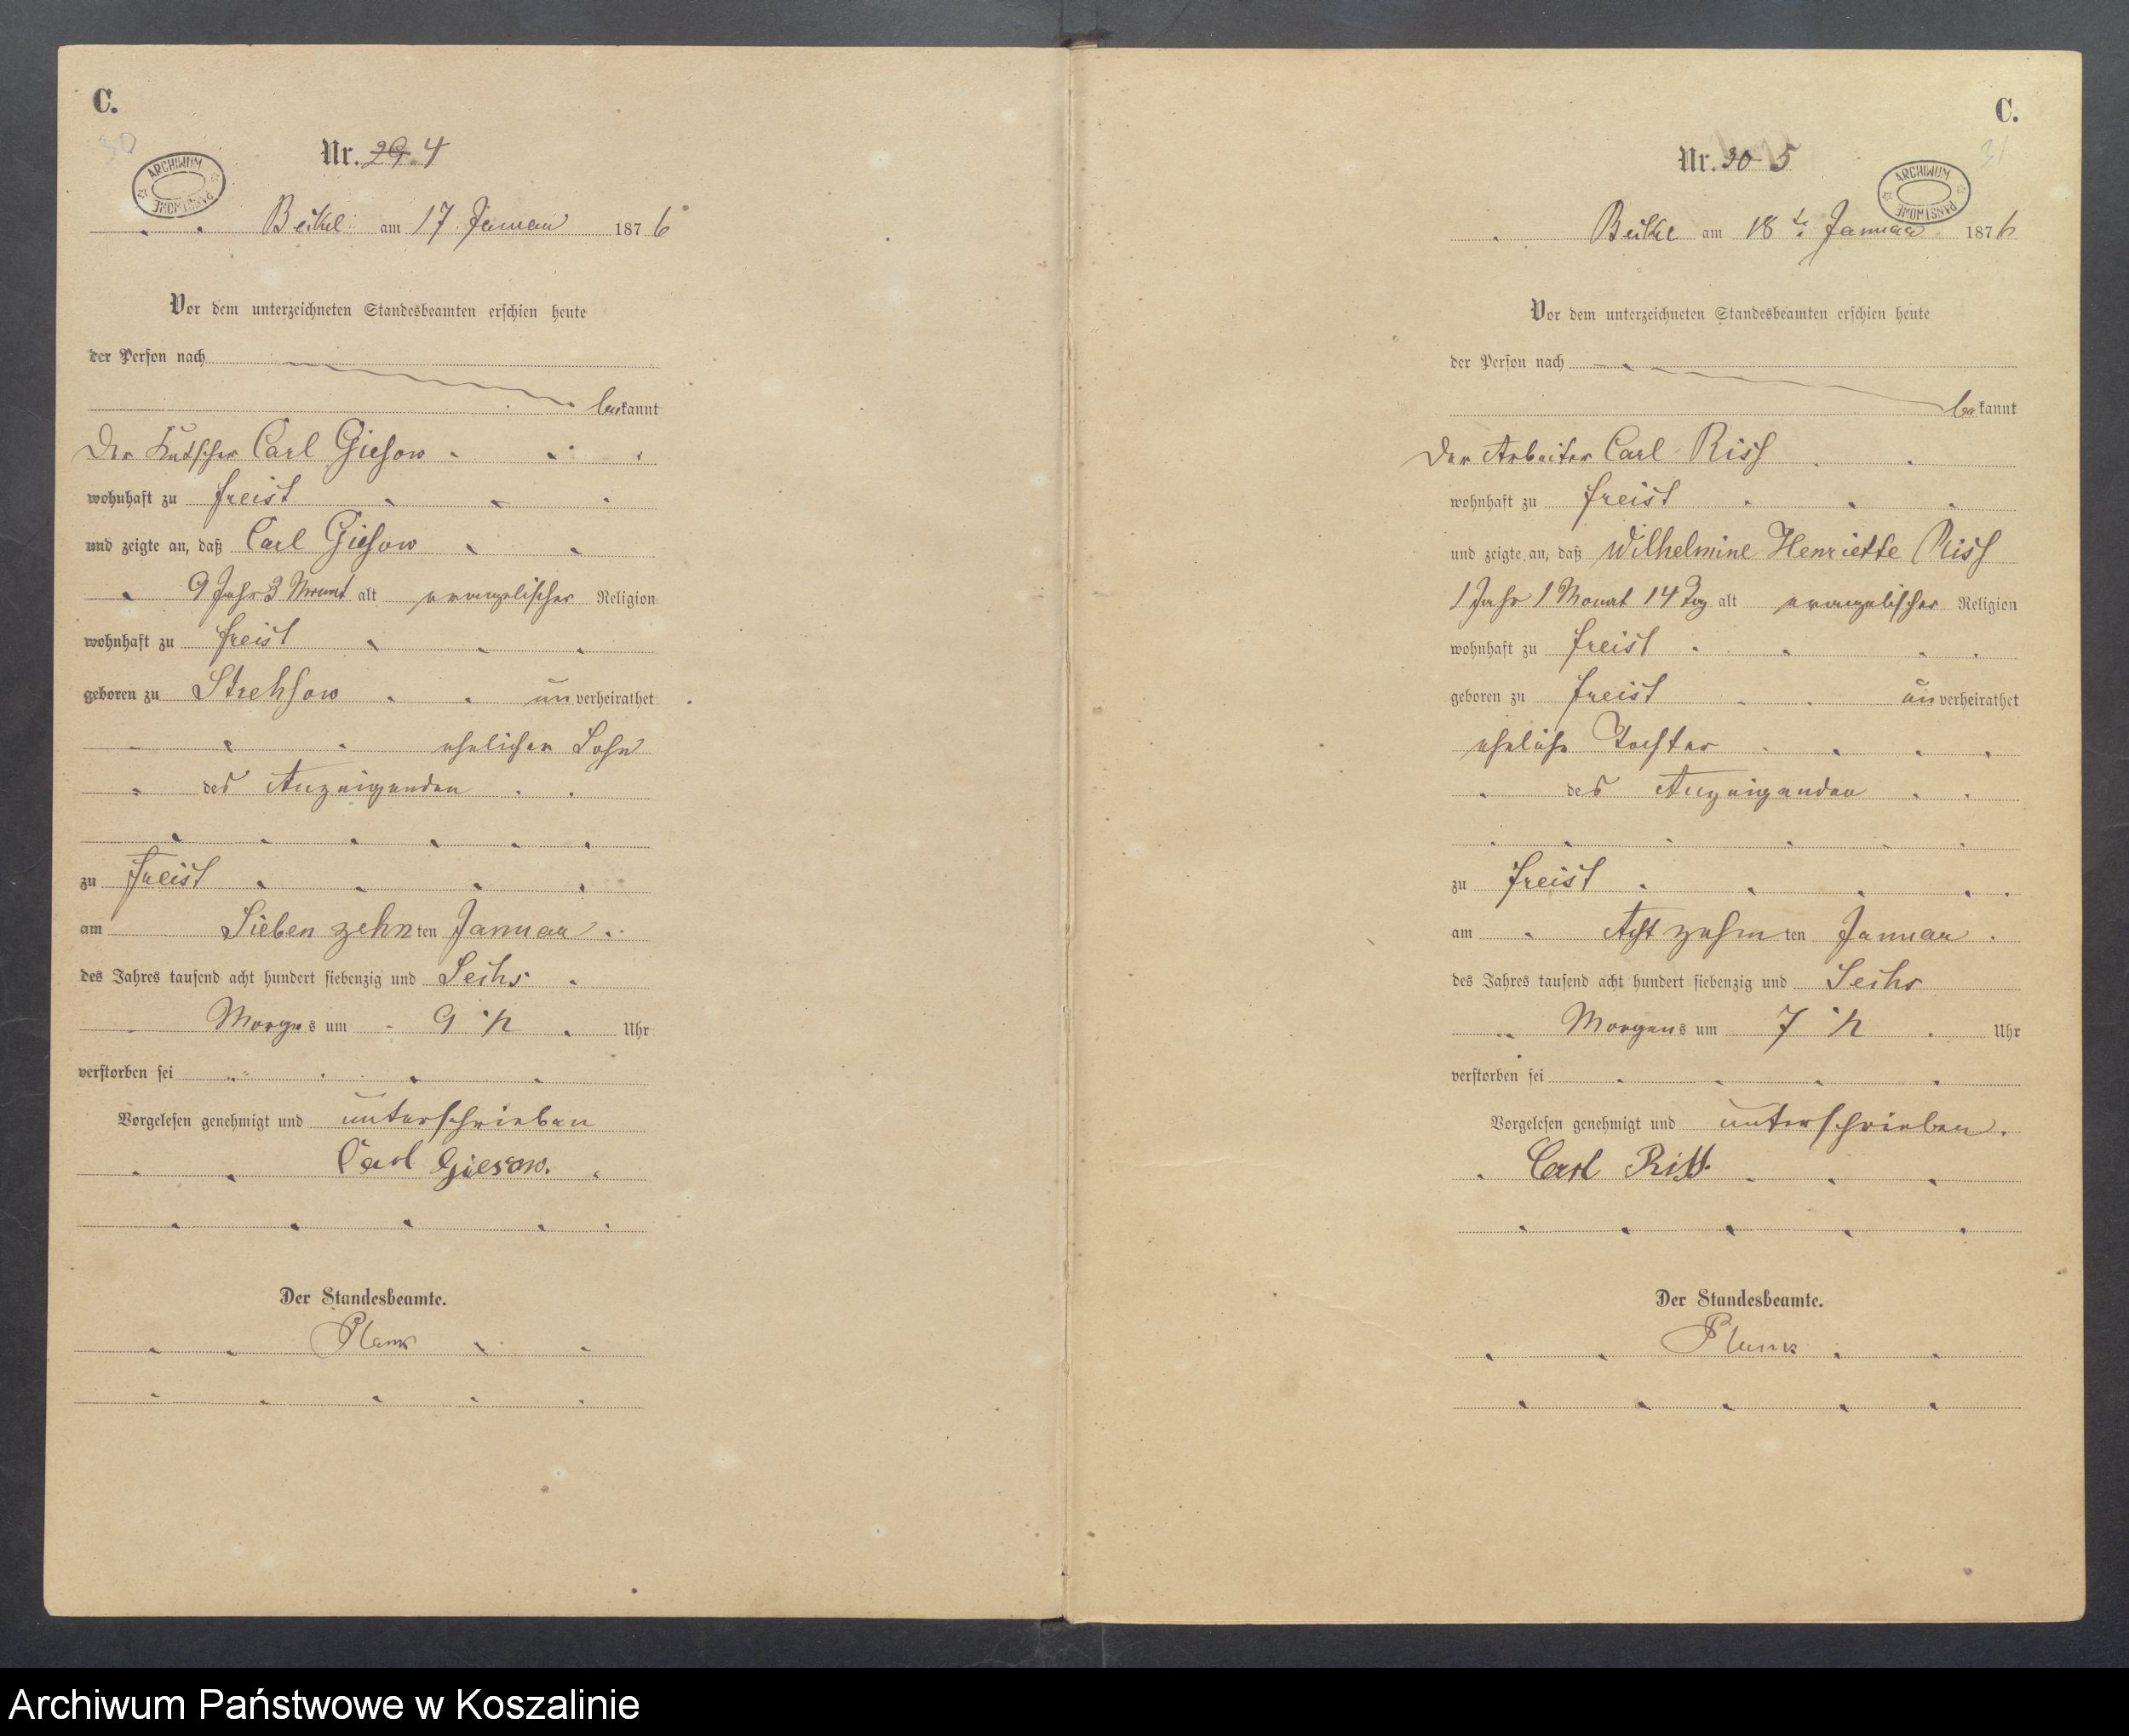 C.
30
Nr. 29. 4
ARCHIWUM PAŃSTWOWE
Beikel am 17 Januar 1876
Vor dem unterzeichneten Standesbeamten erschien heute
der Person nach
bekannt
Der Kutscher Carl Giesow
wohnhaft zu Freist
und zeigte an, daß Carl Giesow
9 Jahr 3 Monat alt evangelischer Religion
wohnhaft zu Freist
geboren zu Strehsow unverheirathet
ehelicher Sohn
des Anzeigenden
zu Freist
am Siebenzehnten Januar
des Jahres tausend acht hundert siebenzig und Sechs
Morgens um 9 Uhr
verstorben sei
Vorgelesen genehmigt und unterschrieben
Carl Giesow.
Der Standesbeamte.
C.
31
Nr. 30 5
ARCHIWUM PAŃSTWOWE
Beikel am 18 te Januar 1876
Vor dem unterzeichneten Standesbeamten erschien heute
der Person nach
bekannt
Der Arbeiter Carl Riss
wohnhaft zu Freist
und zeigte an, daß Wilhelmine Henriette Riss
1 Jahr 1 Monat 14 Tag alt evangelischer Religion
wohnhaft zu Freist
geboren zu Freist unverheirathet
eheliche Tochter
des Anzeigenden
zu Freist
am Achtzehnten Januar
des Jahres tausend acht hundert siebenzig und Sechs
Morgens um 7 Uhr
verstorben sei
Vorgelesen genehmigt und unterschrieben.
Carl Riss.
Der Standesbeamte.
Archiwum Państwowe w Koszalinie